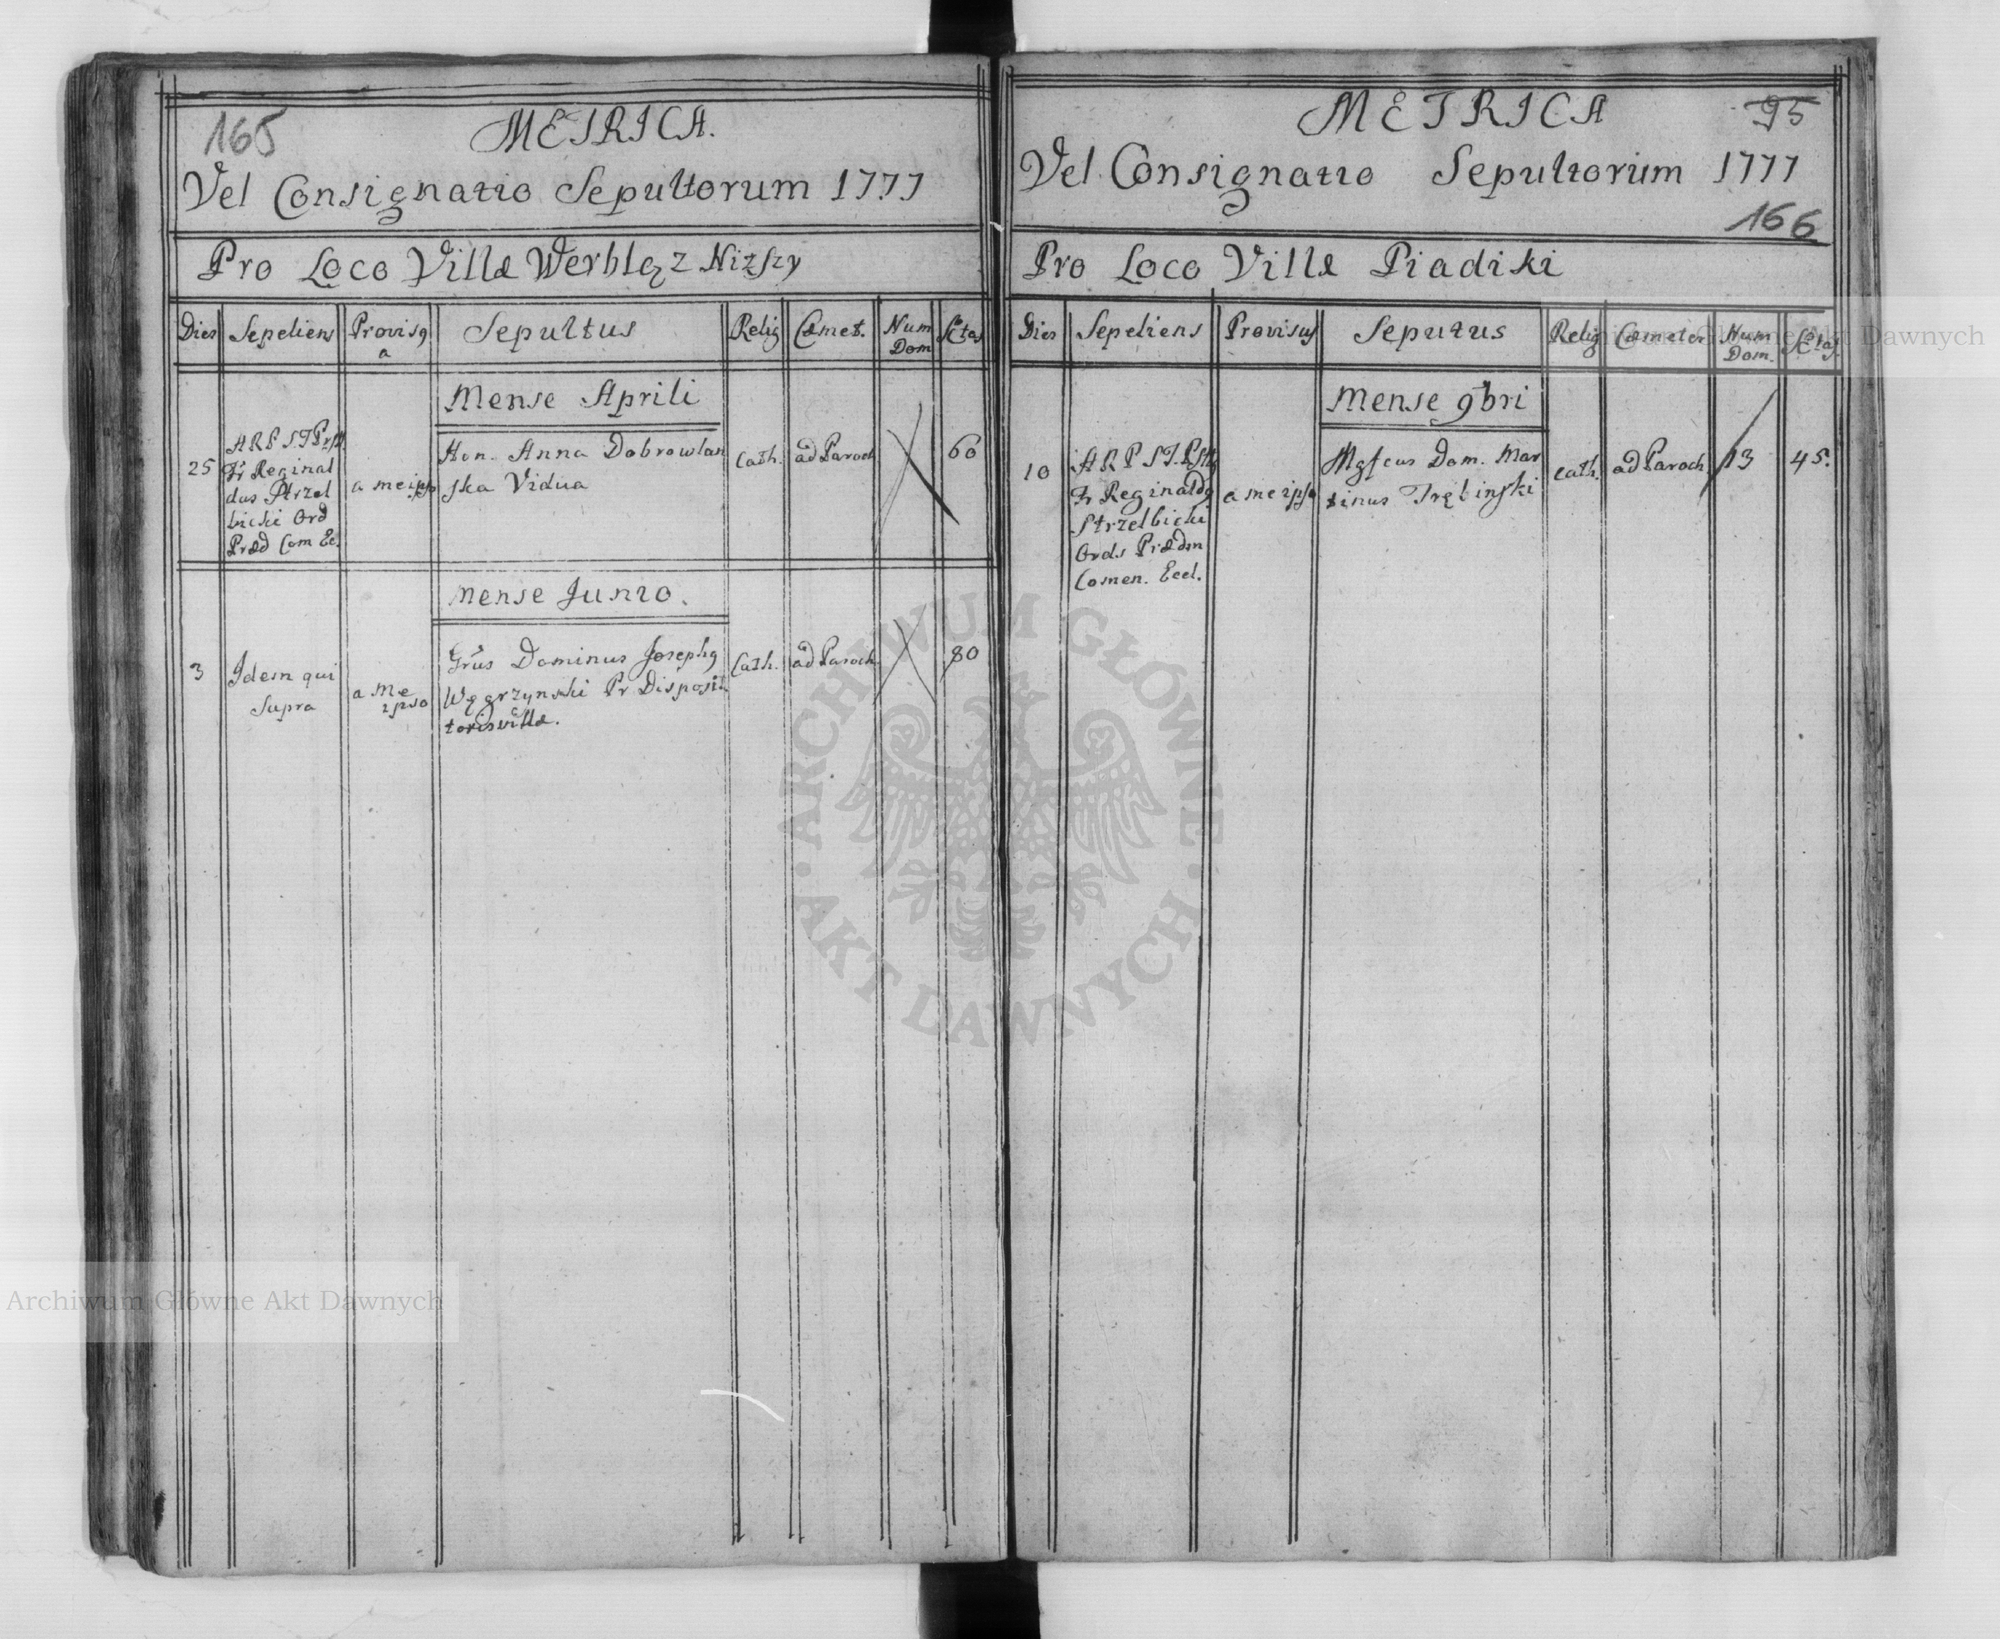 165
METRICA.
Vel Consignatio Sepultorum 1777
Pro Loco Villæ Werbląz Niższy
Dies Sepeliens Provisq a Sepultus Relig Cæmet. Num Dom Ætas
Mense Aprili
25
A R P S.T.
Fr Reginal
dus Strzel
bicki Ord
Præd Com Ec.
a meipso
Hon. Anna Dobrowlan
ska Vidua
Cath.
ad Paroch
60
Mense Junio.
3
Idem qui
Supra
a me
ipso
Grus Dominus Josephq
Węgrzynski Pr Disposi
toris villæ.
Cath.
ad Paroch
80
METRICA
95
Vel Consignatio Sepultorum 1777
166
Pro Loco Villæ Piadiki
Dies Sepeliens Provisus Seputus Relig Cæmeter Num Dom. Ætas.
Mense 9bri
10
A R P S T.
Fr Reginaldq
Strzelbicki
Ords Prædm
Comen. Eccl.
a meipso
Mgfcus Dom. Mar
tinus Trębinski
cath.
ad Paroch
13
45.
Archiwum Główne Akt Dawnych
ARCHIWUM GŁÓWNE · AKT DAWNYCH ·
Archiwum Główne Akt Dawnych